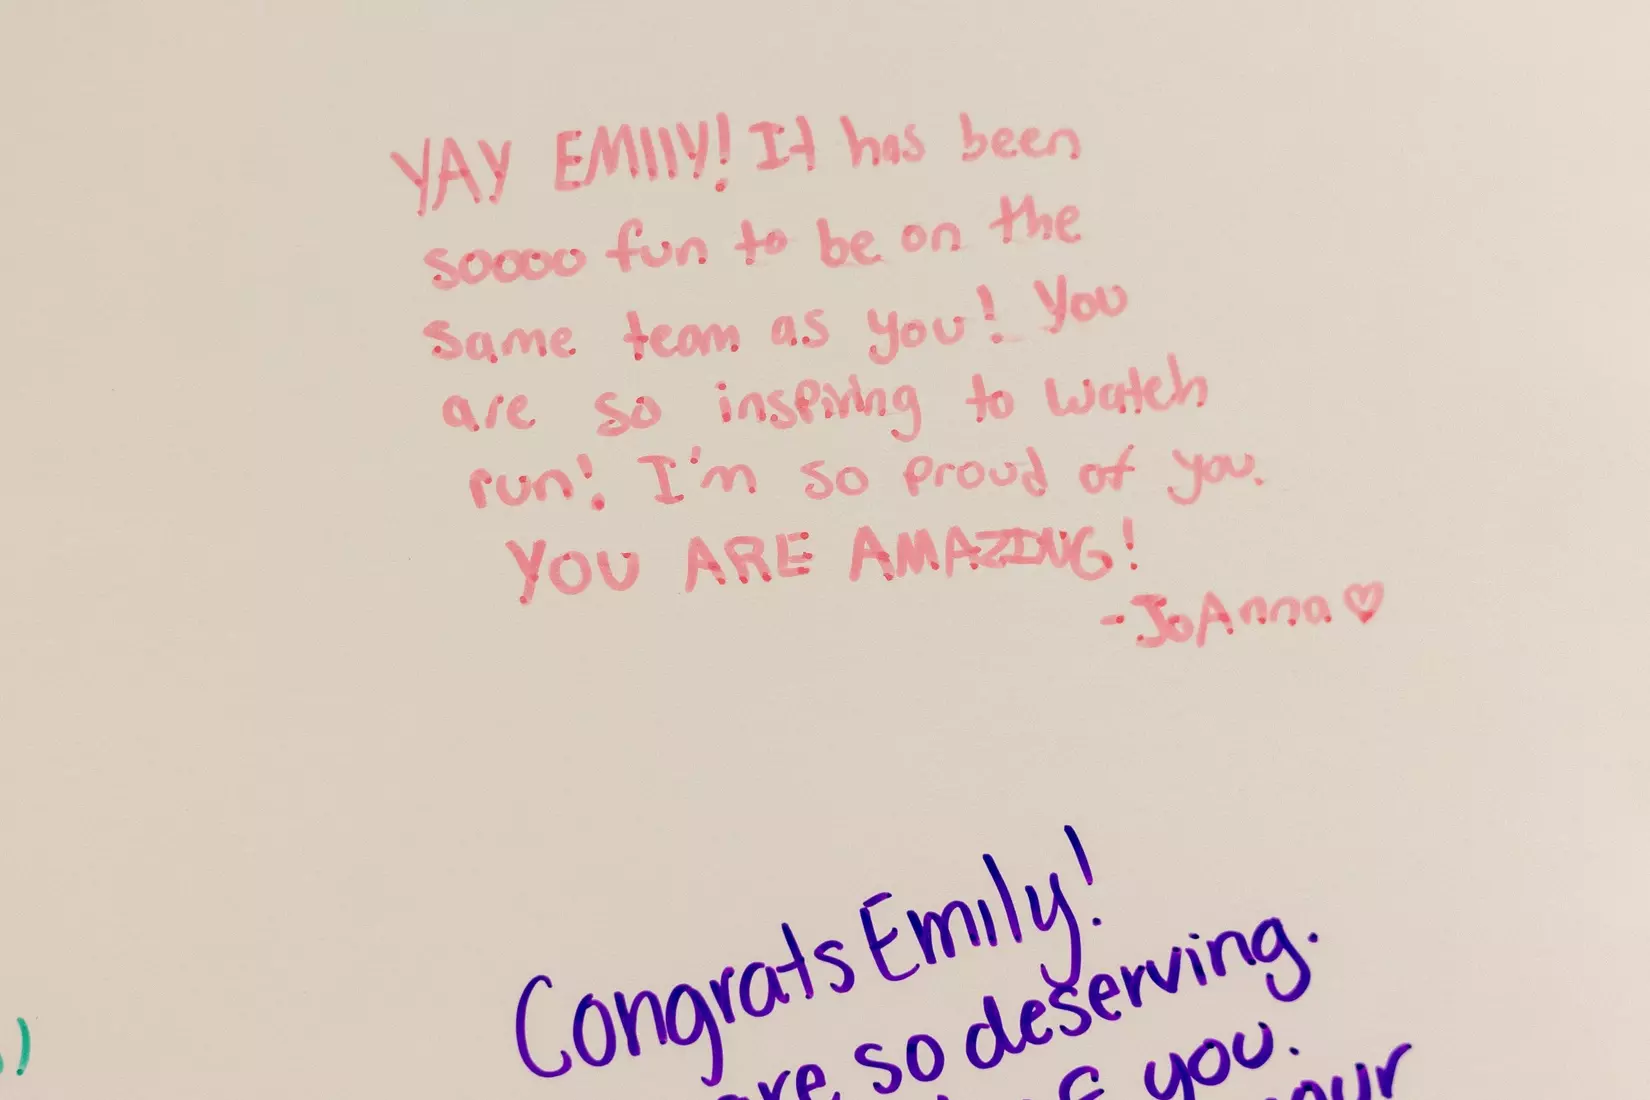 YAY EMIlY! It has been
soooo fun to be on the
same team as you! You
are so inspiring to watch
run! I'm so proud of you.
YOU ARE AMAZING!
-JoAnna♡
Congrats Emily!
are so deserving.
of you.